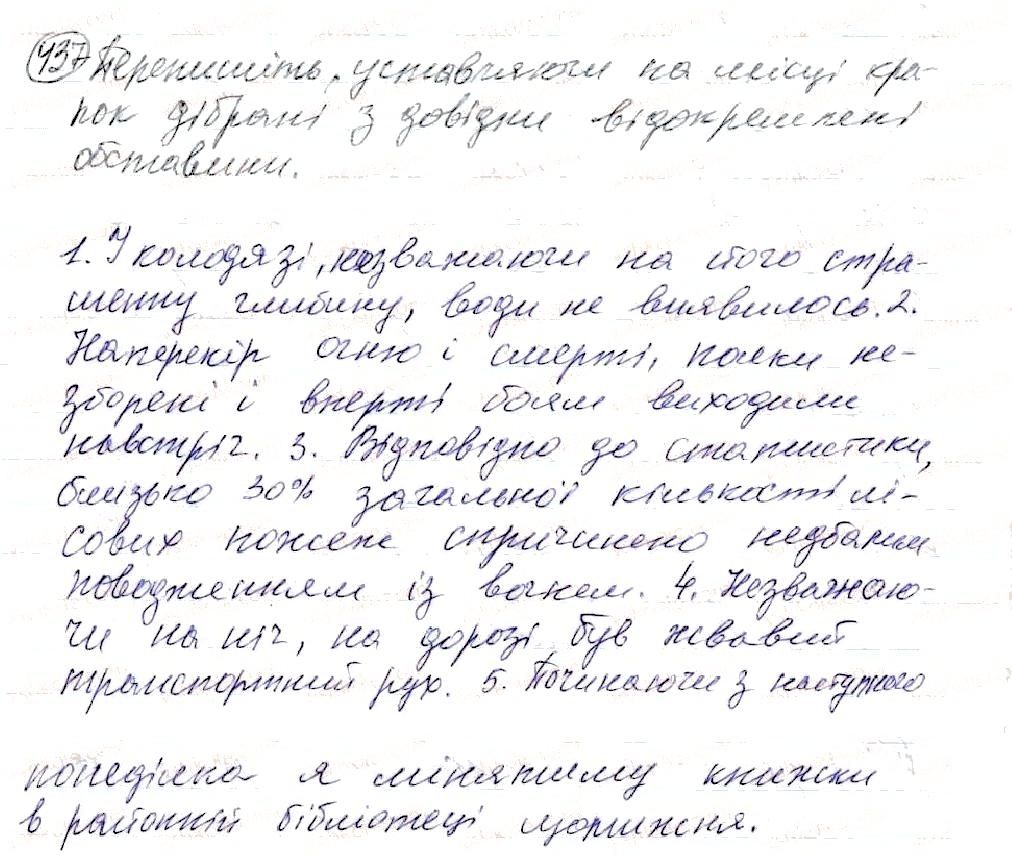 437 Перепишіть, уставляючи на місці кра-
пок дібрані з довідки відокремлені
обставини.
1. У колодязі, незважаючи на його стра-
шенну глибину, води не виявилось. 2.
Наперекір огню і смерті, полки не-
зборені і вперті боям виходили
навстріч. 3. Відповідно до статистики,
близько 30% загальної кількості лі-
сових пожеж спричинено недбалим
поводженням із вогнем. 4. Незважаю-
чи на ніч, на дорозі був жвавий
транспортний рух. 5. Починаючи з наступного
понеділка я мінятиму книжки
в районній бібліотеці щотижня.